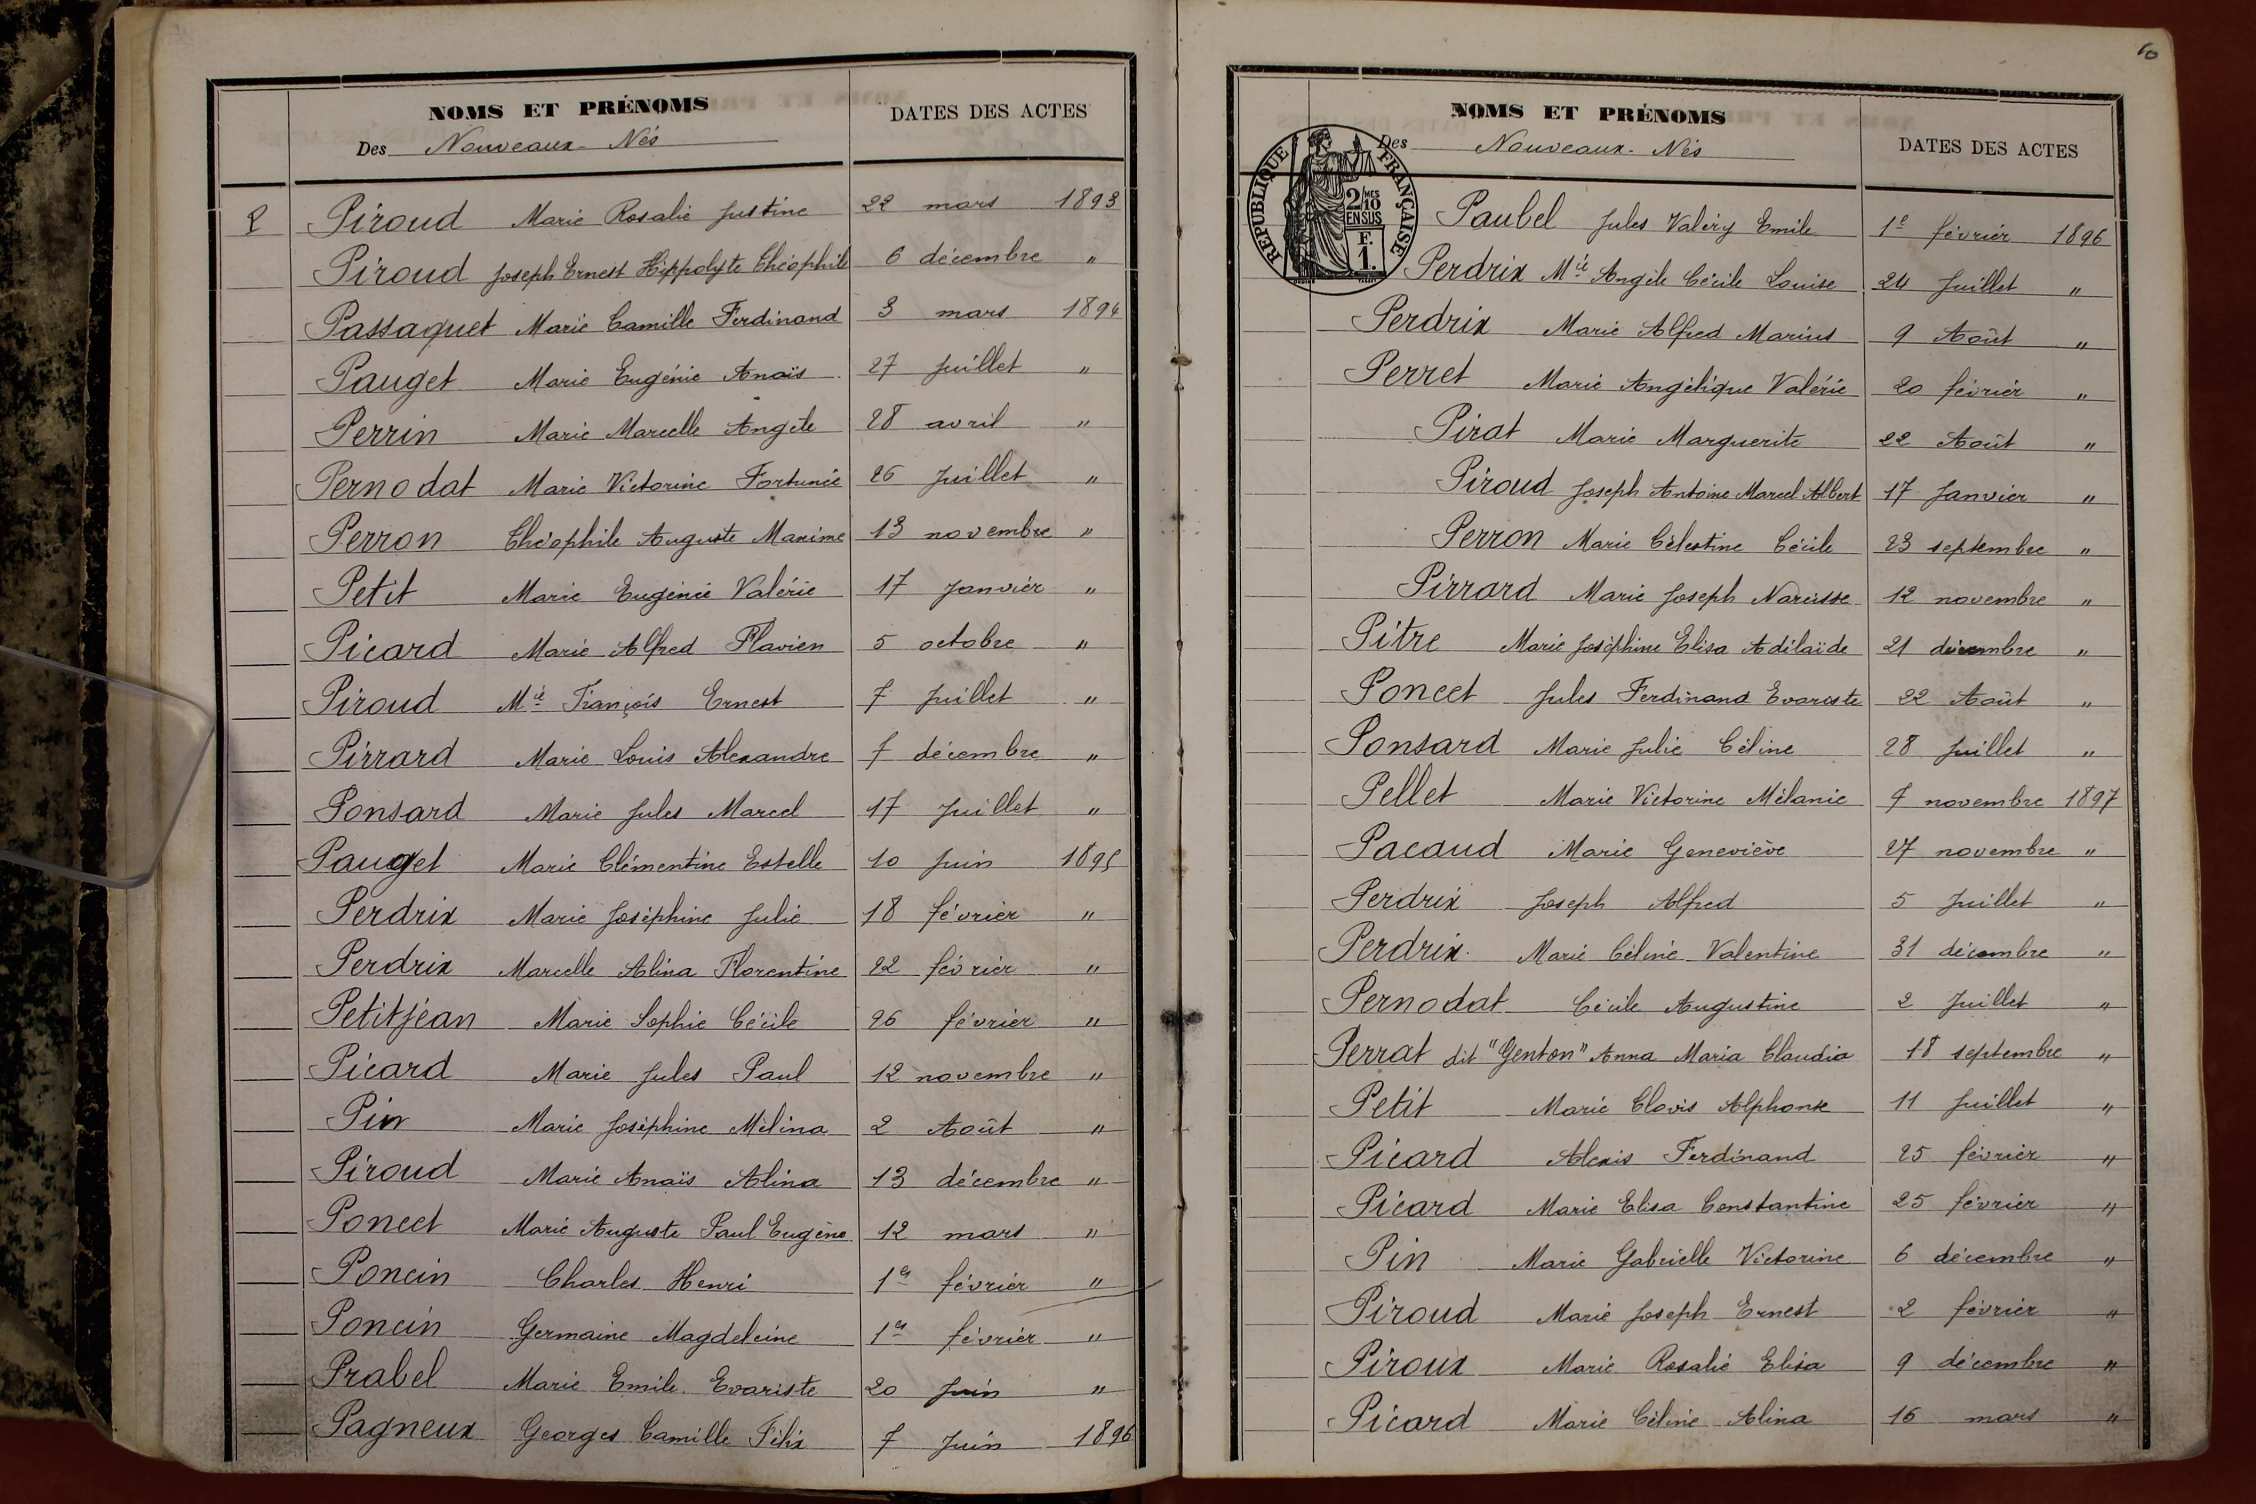 NOMS ET PRÉNOMS
Des Nouveaux-Nés
DATES DES ACTES
P Piroud Marie Rosalie Justine 22 mars 1893
Piroud Joseph Ernest Hippolyte Théophile 6 décembre "
Passaquet Marie Camille Ferdinand 3 mars 1894
Pauget Marie Eugénie Anaïs 27 Juillet "
Perrin Marie Marcelle Angèle 28 avril "
Pernodat Marie Victorine Fortunée 26 Juillet "
Perron Théophile Auguste Maxime 13 novembre "
Petit Marie Eugénie Valérie 17 Janvier "
Picard Marie Alfred Flavien 5 octobre "
Piroud Mie François Ernest 7 Juillet "
Pirrard Marie Louis Alexandre 7 décembre "
Ponsard Marie Jules Marcel 17 Juillet "
Pauget Marie Clémentine Estelle 10 Juin 1895
Perdrix Marie Joséphine Julie 18 février "
Perdrix Marcelle Alina Florentine 22 février "
Petitjean Marie Sophie Cécile 26 février "
Picard Marie Jules Paul 12 novembre "
Pin Marie Joséphine Mélina 2 Août "
Piroud Marie Anaïs Alina 13 décembre "
Poncet Marie Auguste Paul Eugène 12 mars "
Poncin Charles Henri 1er février "
Poncin Germaine Magdeleine 1er février "
Prabel Marie Emile Evariste 20 Juin "
Pagneux Georges Camille Félix 7 Juin 1896
60
NOMS ET PRÉNOMS
Des Nouveaux-Nés
DATES DES ACTES
RÉPUBLIQUE FRANÇAISE
2/10 MES
EN SUS
F.
1.
Paubel Jules Valéry Emile 1e février 1896
Perdrix Mie Angèle Cécile Louise 24 Juillet "
Perdrix Marie Alfred Marius 9 Août "
Perret Marie Angélique Valérie 20 février "
Pirat Marie Marguerite 22 Août "
Piroud Joseph Antoine Marcel Albert 17 Janvier "
Perron Marie Célestine Cécile 23 septembre "
Pirrard Marie Joseph Narcisse 12 novembre "
Pitre Marie Joséphine Elisa Adélaïde 21 décembre "
Poncet Jules Ferdinand Evariste 22 Août "
Ponsard Marie Julie Céline 28 Juillet "
Pellet Marie Victorine Mélanie 7 novembre 1897
Pacaud Marie Geneviève 27 novembre "
Perdrix Joseph Alfred 5 Juillet "
Perdrix Marie Céline Valentine 31 décembre "
Pernodat Cécile Augustine 2 Juillet "
Perrat dit "Genton" Anna Maria Claudia 18 septembre "
Petit Marie Clovis Alphonse 11 Juillet "
Picard Alexis Ferdinand 25 février "
Picard Marie Elisa Constantine 25 février "
Pin Marie Gabrielle Victorine 6 décembre "
Piroud Marie Joseph Ernest 2 février "
Piroux Marie Rosalie Elisa 9 décembre "
Picard Marie Céline Alina 16 mars "